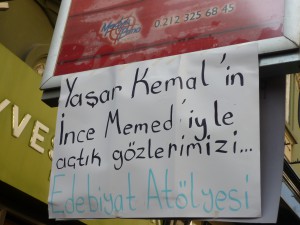 0 212 325 68 45
Yaşar Kemal'in
İnce Memed'iyle
açtık gözlerimizi...
Edebiyat Atölyesi